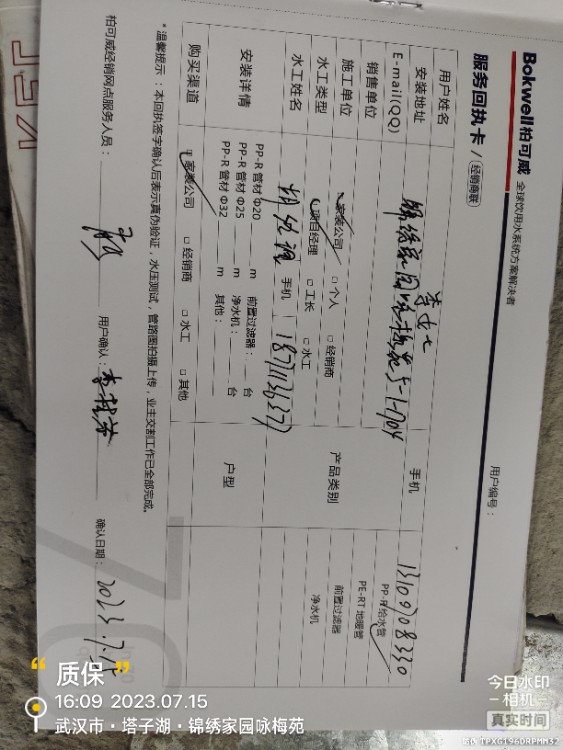 Bokwell柏可威 全球饮用水系统方案解决者
服务回执卡 / 经销商联
用户编号：
用户姓名 手机 13109708330
安装地址 锦绣家园咏梅苑5-1-704
E-mail(QQ)
销售单位
施工单位 家装公司 个人 经销商
水工类型 项目经理 工长 水工
水工姓名 胡处理 手机
产品类别 PP-R给水管
PE-RT地暖管
前置过滤器
净水机
安装详情 PP-R 管材 Φ20 m 前置过滤器： 台
PP-R 管材 Φ25 m 净水机： 台
PP-R 管材 Φ32 m 其他：
户型
购买渠道 家装公司 经销商 水工 其他
*温馨提示：本回执签字确认后表示真伪验证，水压测试，管路图拍摄上传，业主交割工作已全部完成。
柏可威经销网点服务人员： 用户确认： 确认日期： 2023.7.5
“质保”
16:09 2023.07.15
武汉市·塔子湖·锦绣家园咏梅苑
今日水印
相机
真实时间